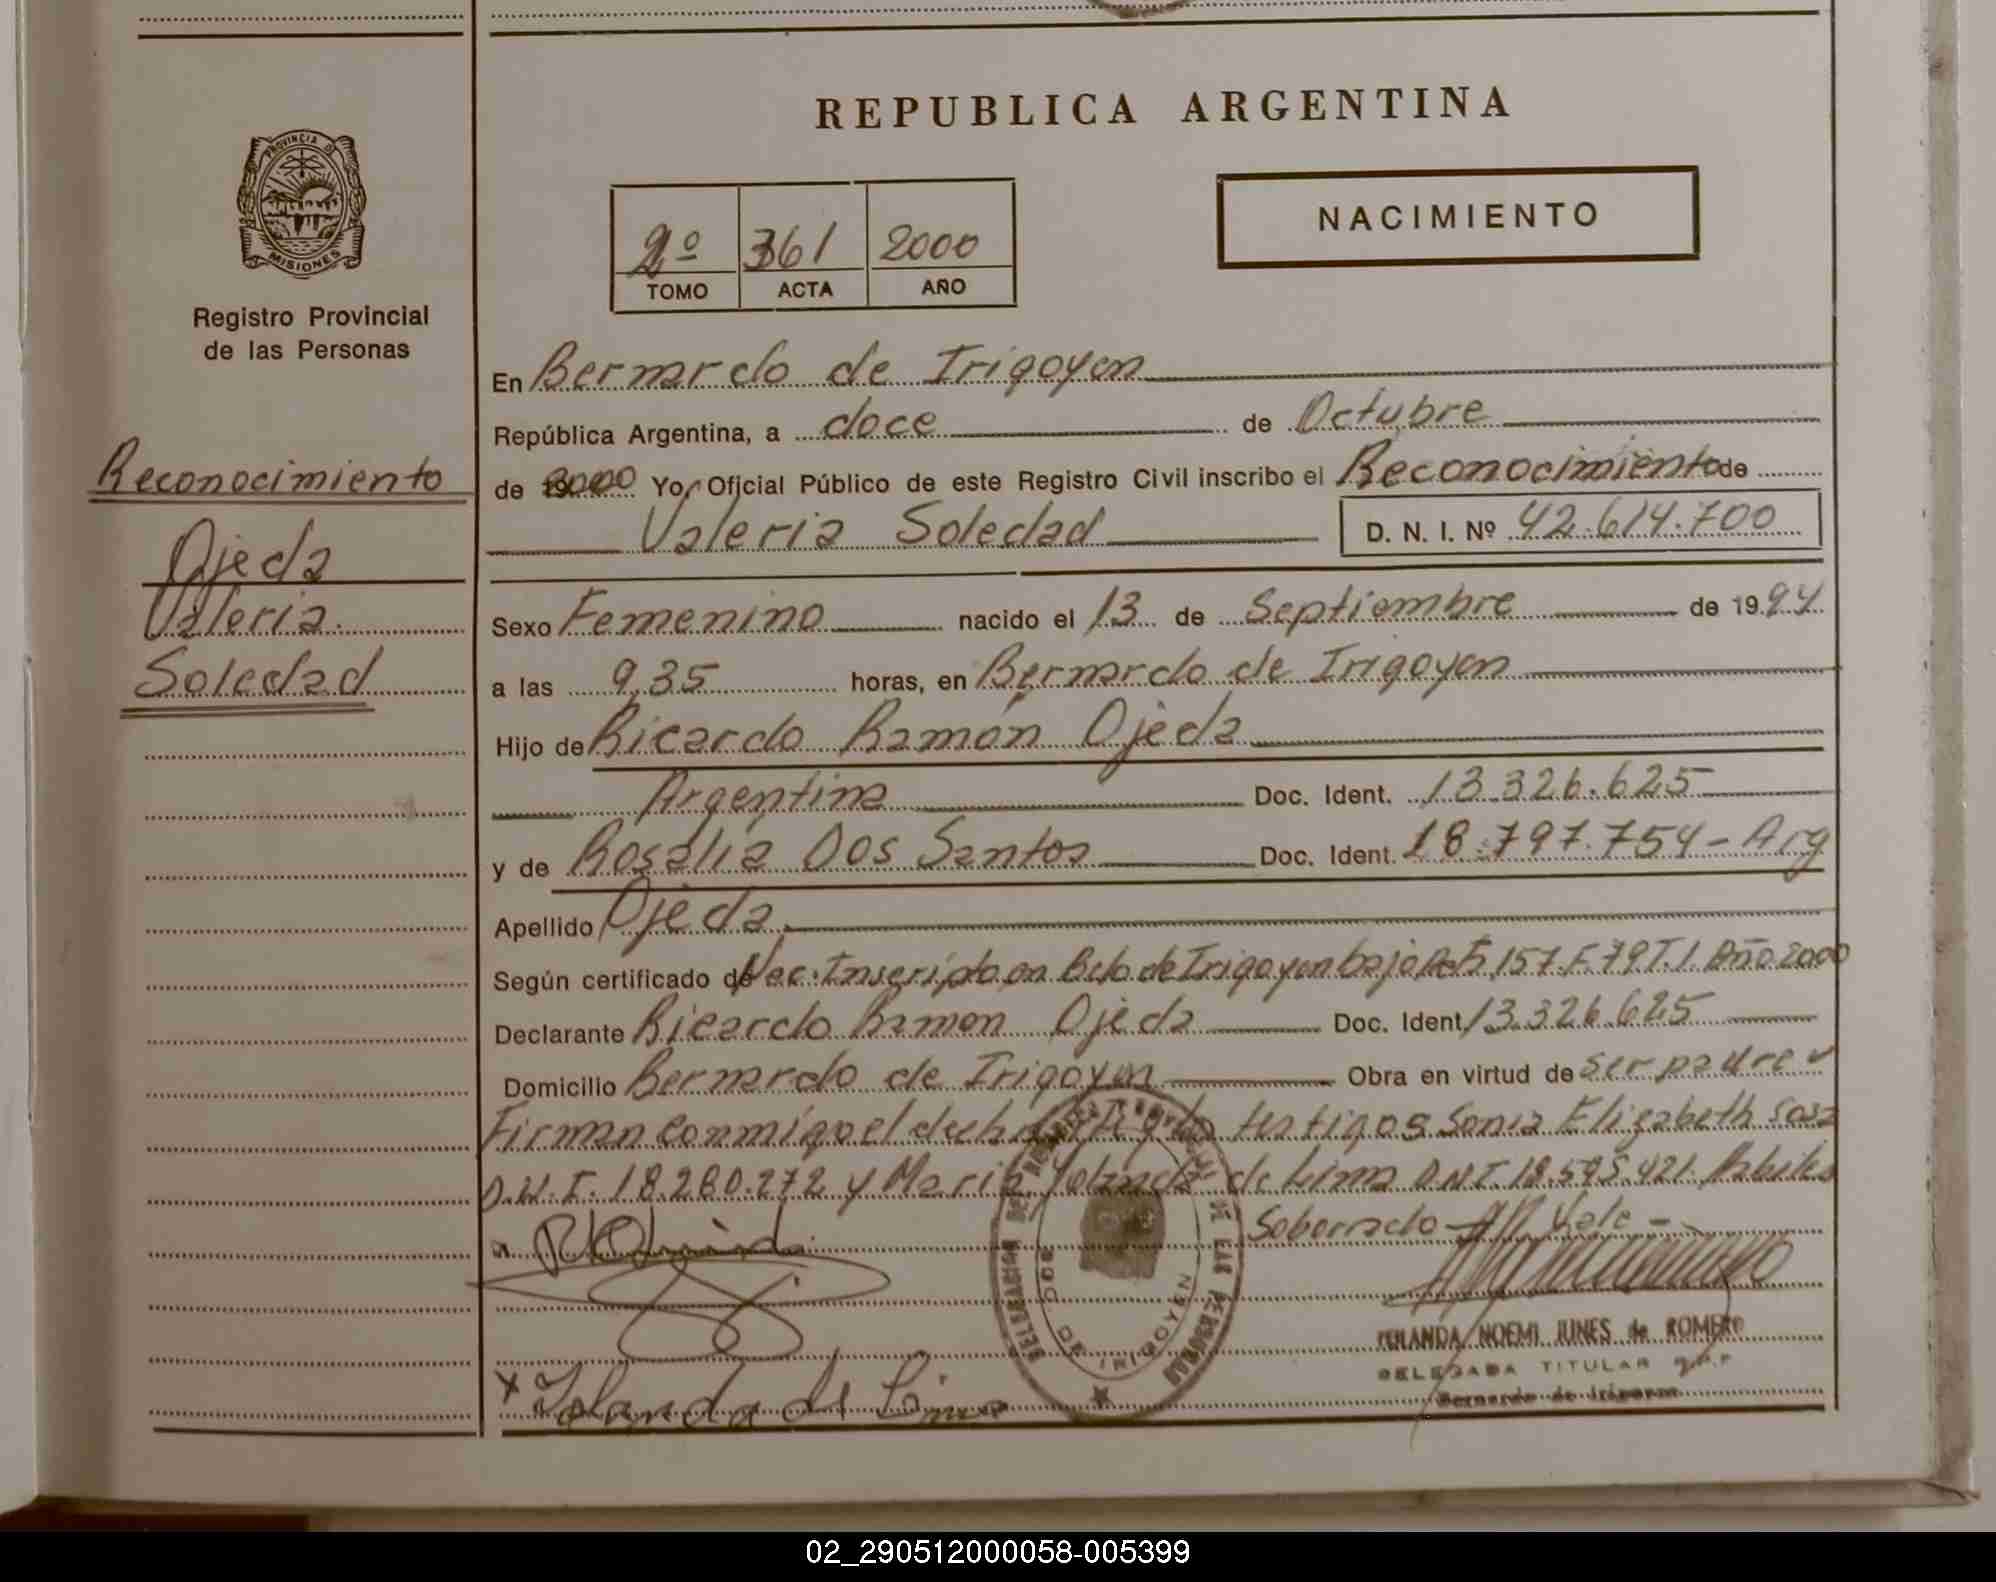 REPUBLICA ARGENTINA
PROVINCIA DE
MISIONES
Registro Provincial
de las Personas
NACIMIENTO
2º 361 2000
TOMO ACTA AÑO
Reconocimiento
Ojeda
Valeria
Soledad
En Bernardo de Irigoyen
República Argentina, a doce de Octubre
de 2000 Yo, Oficial Público de este Registro Civil inscribo el Reconocimiento de
Valeria Soledad D. N. I. Nº 42.614.700
Sexo Femenino nacido el 13 de Septiembre de 1994
a las 9,35 horas, en Bernardo de Irigoyen
Hijo de Ricardo Ramón Ojeda
Argentina Doc. Ident. 13.326.625
y de Rosalia Dos Santos Doc. Ident. 18.797.754 - Arg
Apellido Ojeda
Según certificado de Nac. Inscripto en Bdo de Irigoyen bajo 157. F. 79 T. 1. Año 2000
Declarante Ricardo Ramon Ojeda Doc. Ident. 13.326.625
Domicilio Bernardo de Irigoyen Obra en virtud de ser padre
Firman conmigo el testigos Sonia Elizabeth Sosa
D.N.I. 18.280.272 y Maria Yolanda de Lima D.N.I. 18.595.421. Habiles
Soborrado Vale -
DELEGACION DE LAS PERSONAS
BDO. DE IRIGOYEN
YOLANDA NOEMI JUNES de ROMERO
DELEGADA TITULAR
Bernardo de Irigoyen
x Yolanda de Lima
02_290512000058-005399